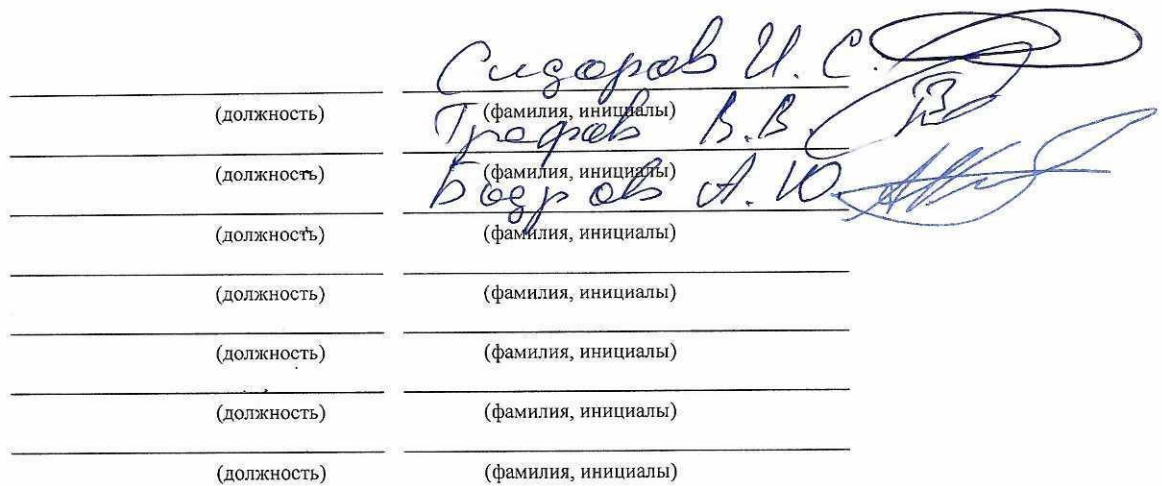 Сидоров И. С.
(должность) (фамилия, инициалы)
Графов В. В.
(должность) (фамилия, инициалы)
Бодров А. Ю.
(должность) (фамилия, инициалы)
(должность) (фамилия, инициалы)
(должность) (фамилия, инициалы)
(должность) (фамилия, инициалы)
(должность) (фамилия, инициалы)